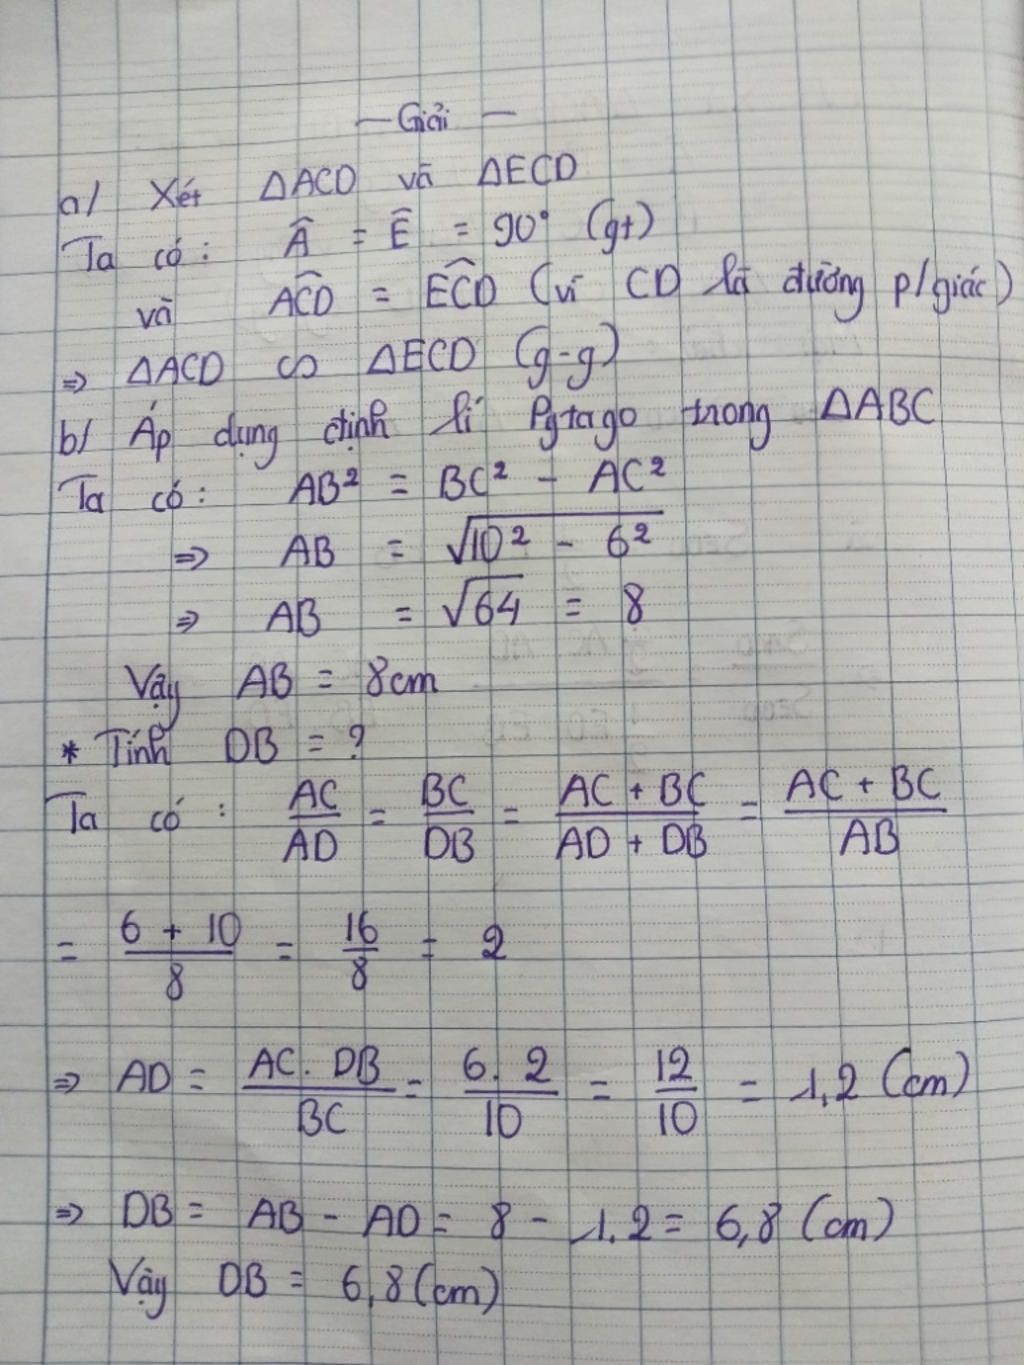 — Giải —
a/ Xét ΔACD và ΔECD
Ta có: Â = Ê = 90° (gt)
và ACD̂ = ECD̂ (vì CD là đường p/giác)
⇒ ΔACD ∽ ΔECD (g-g)
b/ Áp dụng định lí Pytago trong ΔABC
Ta có: AB² = BC² - AC²
⇒ AB = √(10² - 6²)
⇒ AB = √64 = 8
Vậy AB = 8cm
* Tính DB = ?
Ta có: AC/AD = BC/DB = (AC + BC)/(AD + DB) = (AC + BC)/AB
= (6 + 10)/8 = 16/8 = 2
⇒ AD = (AC. DB)/BC = (6. 2)/10 = 12/10 = 1,2 (cm)
⇒ DB = AB - AD = 8 - 1,2 = 6,8 (cm)
Vậy DB = 6,8 (cm)